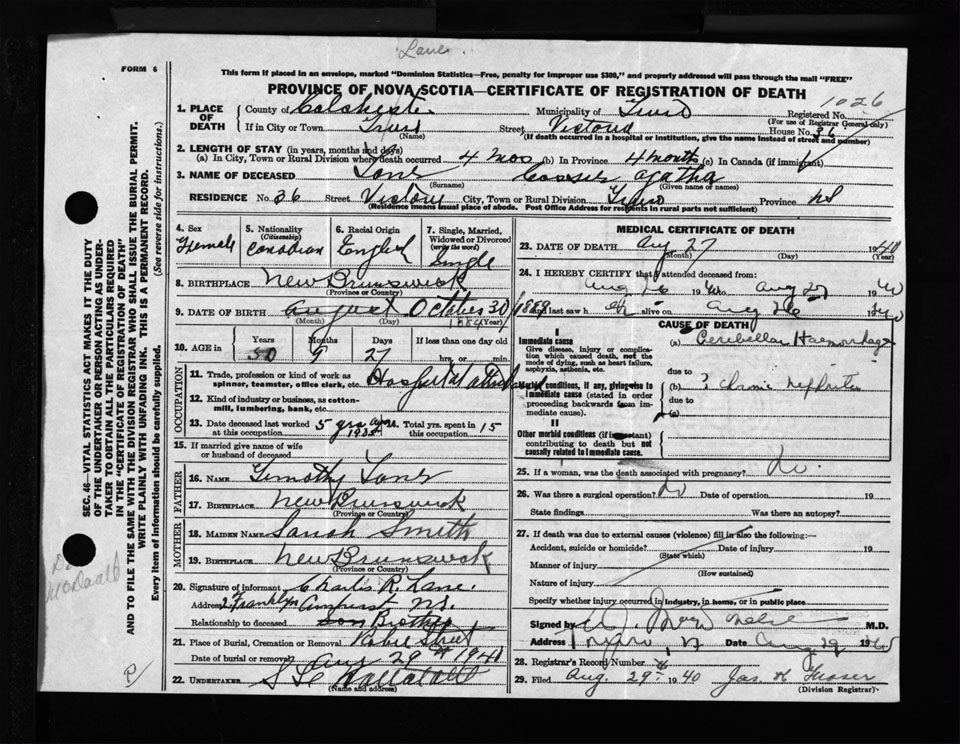 Lane.
FORM 6
This form if placed in an envelope, marked "Dominion Statistics—Free, penalty for improper use $300," and properly addressed will pass through the mail "FREE"
PROVINCE OF NOVA SCOTIA—CERTIFICATE OF REGISTRATION OF DEATH
1026
1. PLACE OF DEATH County of Colchester Municipality of Truro Registered No.
(For use of Registrar General only)
If in City or Town Truro Street Victoria House No. 36
(Name) (If death occurred in a hospital or institution, give the name instead of street and number)
2. LENGTH OF STAY (in years, months and days)
(a) In City, Town or Rural Division where death occurred 4 mos (b) In Province 4 months (c) In Canada (if immigrant)
3. NAME OF DECEASED Lane Agatha
(Surname) (Given name or names)
RESIDENCE No. 36 Street Victoria City, Town or Rural Division Truro Province NS
(Residence means usual place of abode. Post Office Address for residents in rural parts not sufficient)
4. Sex Female
5. Nationality (Citizenship) Canadian
6. Racial Origin English
7. Single, Married, Widowed or Divorced (write the word) Single
8. BIRTHPLACE New Brunswick
(Province or Country)
9. DATE OF BIRTH August October 30 / 1889
(Month) (Day) 1884 (Year)
10. AGE in Years Months Days If less than one day old
50 9 27 hrs. or min.
OCCUPATION
11. Trade, profession or kind of work as spinner, teamster, office clerk, etc. Hospital attendant
12. Kind of industry or business, as cotton-mill, lumbering, bank, etc.
13. Date deceased last worked at this occupation 5 yrs ago 1935 14. Total yrs. spent in this occupation 15
15. If married give name of wife or husband of deceased
FATHER
16. NAME Timothy Lane
17. BIRTHPLACE New Brunswick
(Province or Country)
MOTHER
18. MAIDEN NAME Sarah Smith
19. BIRTHPLACE New Brunswick
(Province or Country)
20. Signature of informant Charles R. Lane.
Address 2 Franklyn Amherst NS.
Relationship to deceased Son Brother
21. Place of Burial, Cremation or Removal Robie Street
Date of burial or removal Aug 29th 1940
22. UNDERTAKER
(Name and address)
MEDICAL CERTIFICATE OF DEATH
23. DATE OF DEATH Aug 27 1940
(Month) (Day) (Year)
24. I HEREBY CERTIFY that I attended deceased from
Aug 26 1940 to Aug 27 1940
and last saw her alive on Aug 26 1940
CAUSE OF DEATH
Immediate cause
Give disease, injury or complication which caused death, not the mode of dying, such as heart failure, asphyxia, asthenia, etc.
(a) Cerebellar Haemorrhage
due to
Morbid conditions, if any, giving rise to immediate cause (stated in order proceeding backwards from immediate cause).
(b) ? Chronic Nephritis
due to
(c)
II
Other morbid conditions (if important) contributing to death but not causally related to immediate cause.
25. If a woman, was the death associated with pregnancy? No.
26. Was there a surgical operation? No Date of operation 19
State findings Was there an autopsy?
27. If death was due to external causes (violence) fill in also the following:—
Accident, suicide or homicide? Date of injury 19
(State which)
Manner of injury
(How sustained)
Nature of injury
Specify whether injury occurred in industry, in home, or in public place
Signed by M.D.
Address Truro N Date Aug 29 1940
28. Registrar's Record Number
29. Filed Aug. 29th 1940 Jas. H. Fraser
(Division Registrar)
SEC. 46—VITAL STATISTICS ACT MAKES IT THE DUTY
OF THE UNDERTAKER OR PERSON ACTING AS UNDER-
TAKER TO OBTAIN ALL THE PARTICULARS REQUIRED
IN THE "CERTIFICATE OF REGISTRATION OF DEATH"
AND TO FILE THE SAME WITH THE DIVISION REGISTRAR WHO SHALL ISSUE THE BURIAL PERMIT.
WRITE PLAINLY WITH UNFADING INK. THIS IS A PERMANENT RECORD.
Every item of information should be carefully supplied. (See reverse side for instructions.)